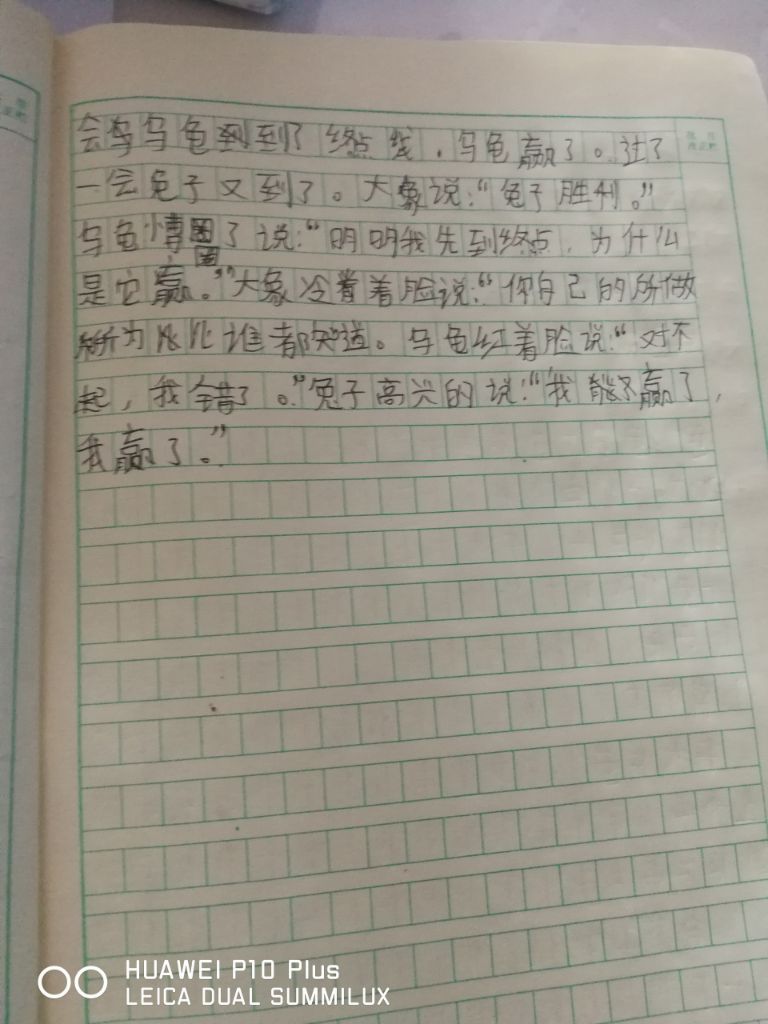 会乌乌龟到到了终点线，乌龟赢了。过了
一会兔子又到了。大象说：“兔子胜利。”
乌龟懵圈了说：“明明我先到终点，为什么
圈
是它赢。”大象冷着着脸说：“你自己的所做
所为谁都知道。乌龟红着脸说：“对不
起，我错了。”兔子高兴的说：“我赢了，
我赢了。”
HUAWEI P10 Plus
LEICA DUAL SUMMILUX